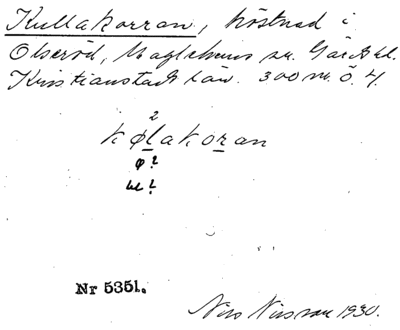 Kullakorran, höstnad i
Olseröd, Maglehems sn. Gärds hd.
Kristianstads län. 300 m. ö. 4.
2
kølakoran
ø?
u?
Nr 5351.
Nils Nilsson 1930.